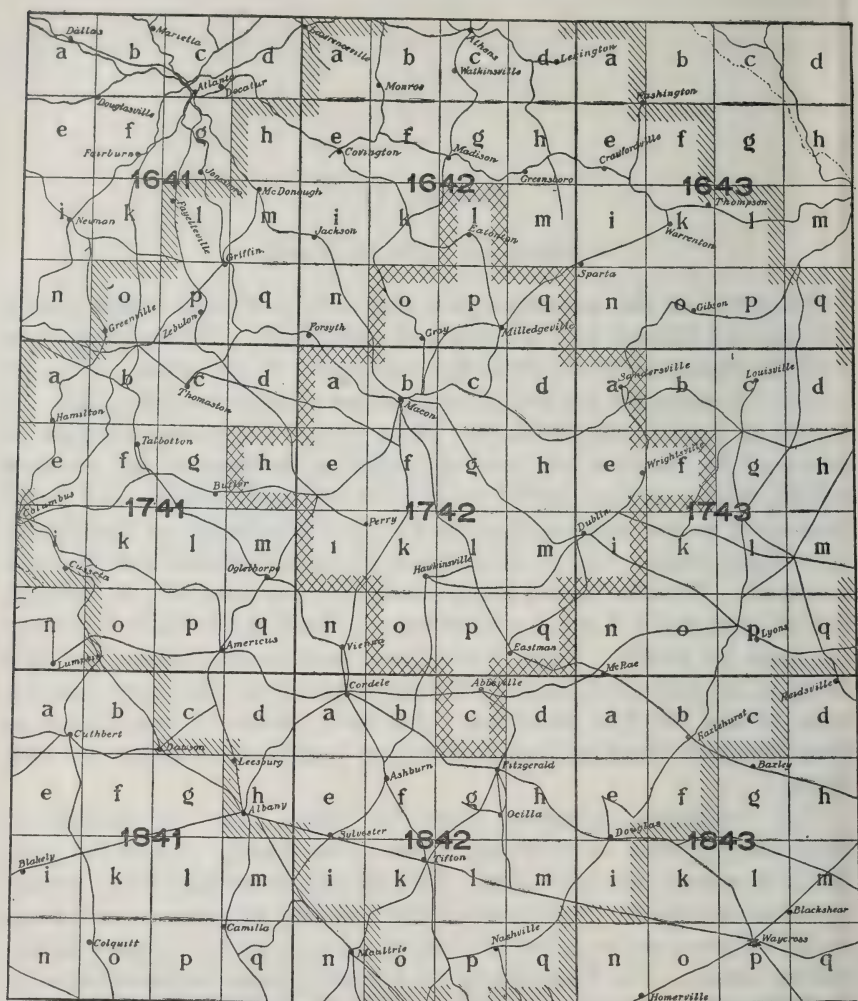 a b c d a b c d a b c d
Dallas Marietta Lawrenceville Athens Lexington
Watkinsville
Atlanta Decatur Monroe Washington
Douglasville
e f g h e f g h e f g h
Fairburn Covington Madison Crawfordville
Jonesboro Greensboro
1641 1642 1643
McDonough Thompson
i k l m i k l m i k l m
Newnan Fayetteville Jackson Eatonton Warrenton
Griffin Sparta
n o p q n o p q n o p q
Greenville Zebulon Forsyth Gray Milledgeville Gibson
a b c d a b c d a b c d
Thomaston Macon Sandersville Louisville
Hamilton
Talbotton
e f g h e f g h e f g h
Butler Wrightsville
Columbus 1741 1742 1743
Perry Dublin
i k l m i k l m i k l m
Cusseta Oglethorpe Hawkinsville
n o p q n o p q n o p q
Lumpkin Americus Vienna Eastman Lyons
McRae
Cordele Abbeville Reidsville
a b c d a b c d a b c d
Cuthbert Dawson Hazlehurst
Leesburg Ashburn Fitzgerald Baxley
e f g h e f g h e f g h
Albany Ocilla
1841 Sylvester 1842 Douglas 1843
Blakely Tifton
i k l m i k l m i k l m
Blackshear
Colquitt Camilla Moultrie Nashville Waycross
n o p q n o p q n o p q
Homerville